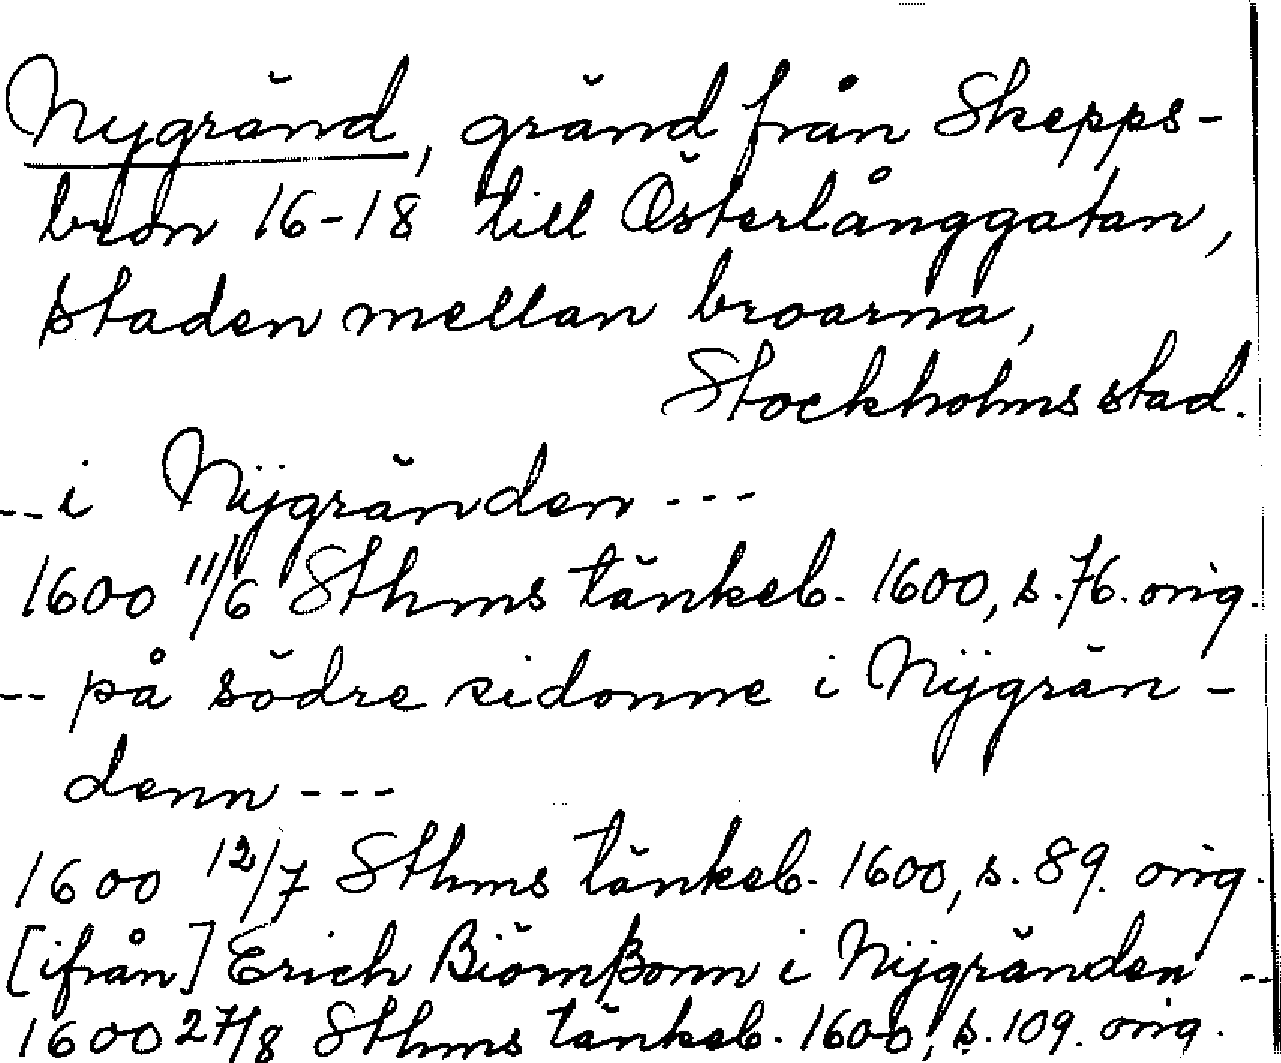 Nygränd, gränd från Skepps-
bron 16-18 till Österlånggatan,
staden mellan broarna,
Stockholms stad.
-- i Nijgränden ---
1600 11/6 Sthms tänkeb. 1600, s. 76. orig.
-- på södre sidonne i Nijgrän-
denn ---
1600 12/7 Sthms tänkeb. 1600, s. 89. orig.
[ifrån] Erich Biörnßonn i Nijgränden --
1600 27/8 Sthms tänkeb. 1600, s. 109. orig.